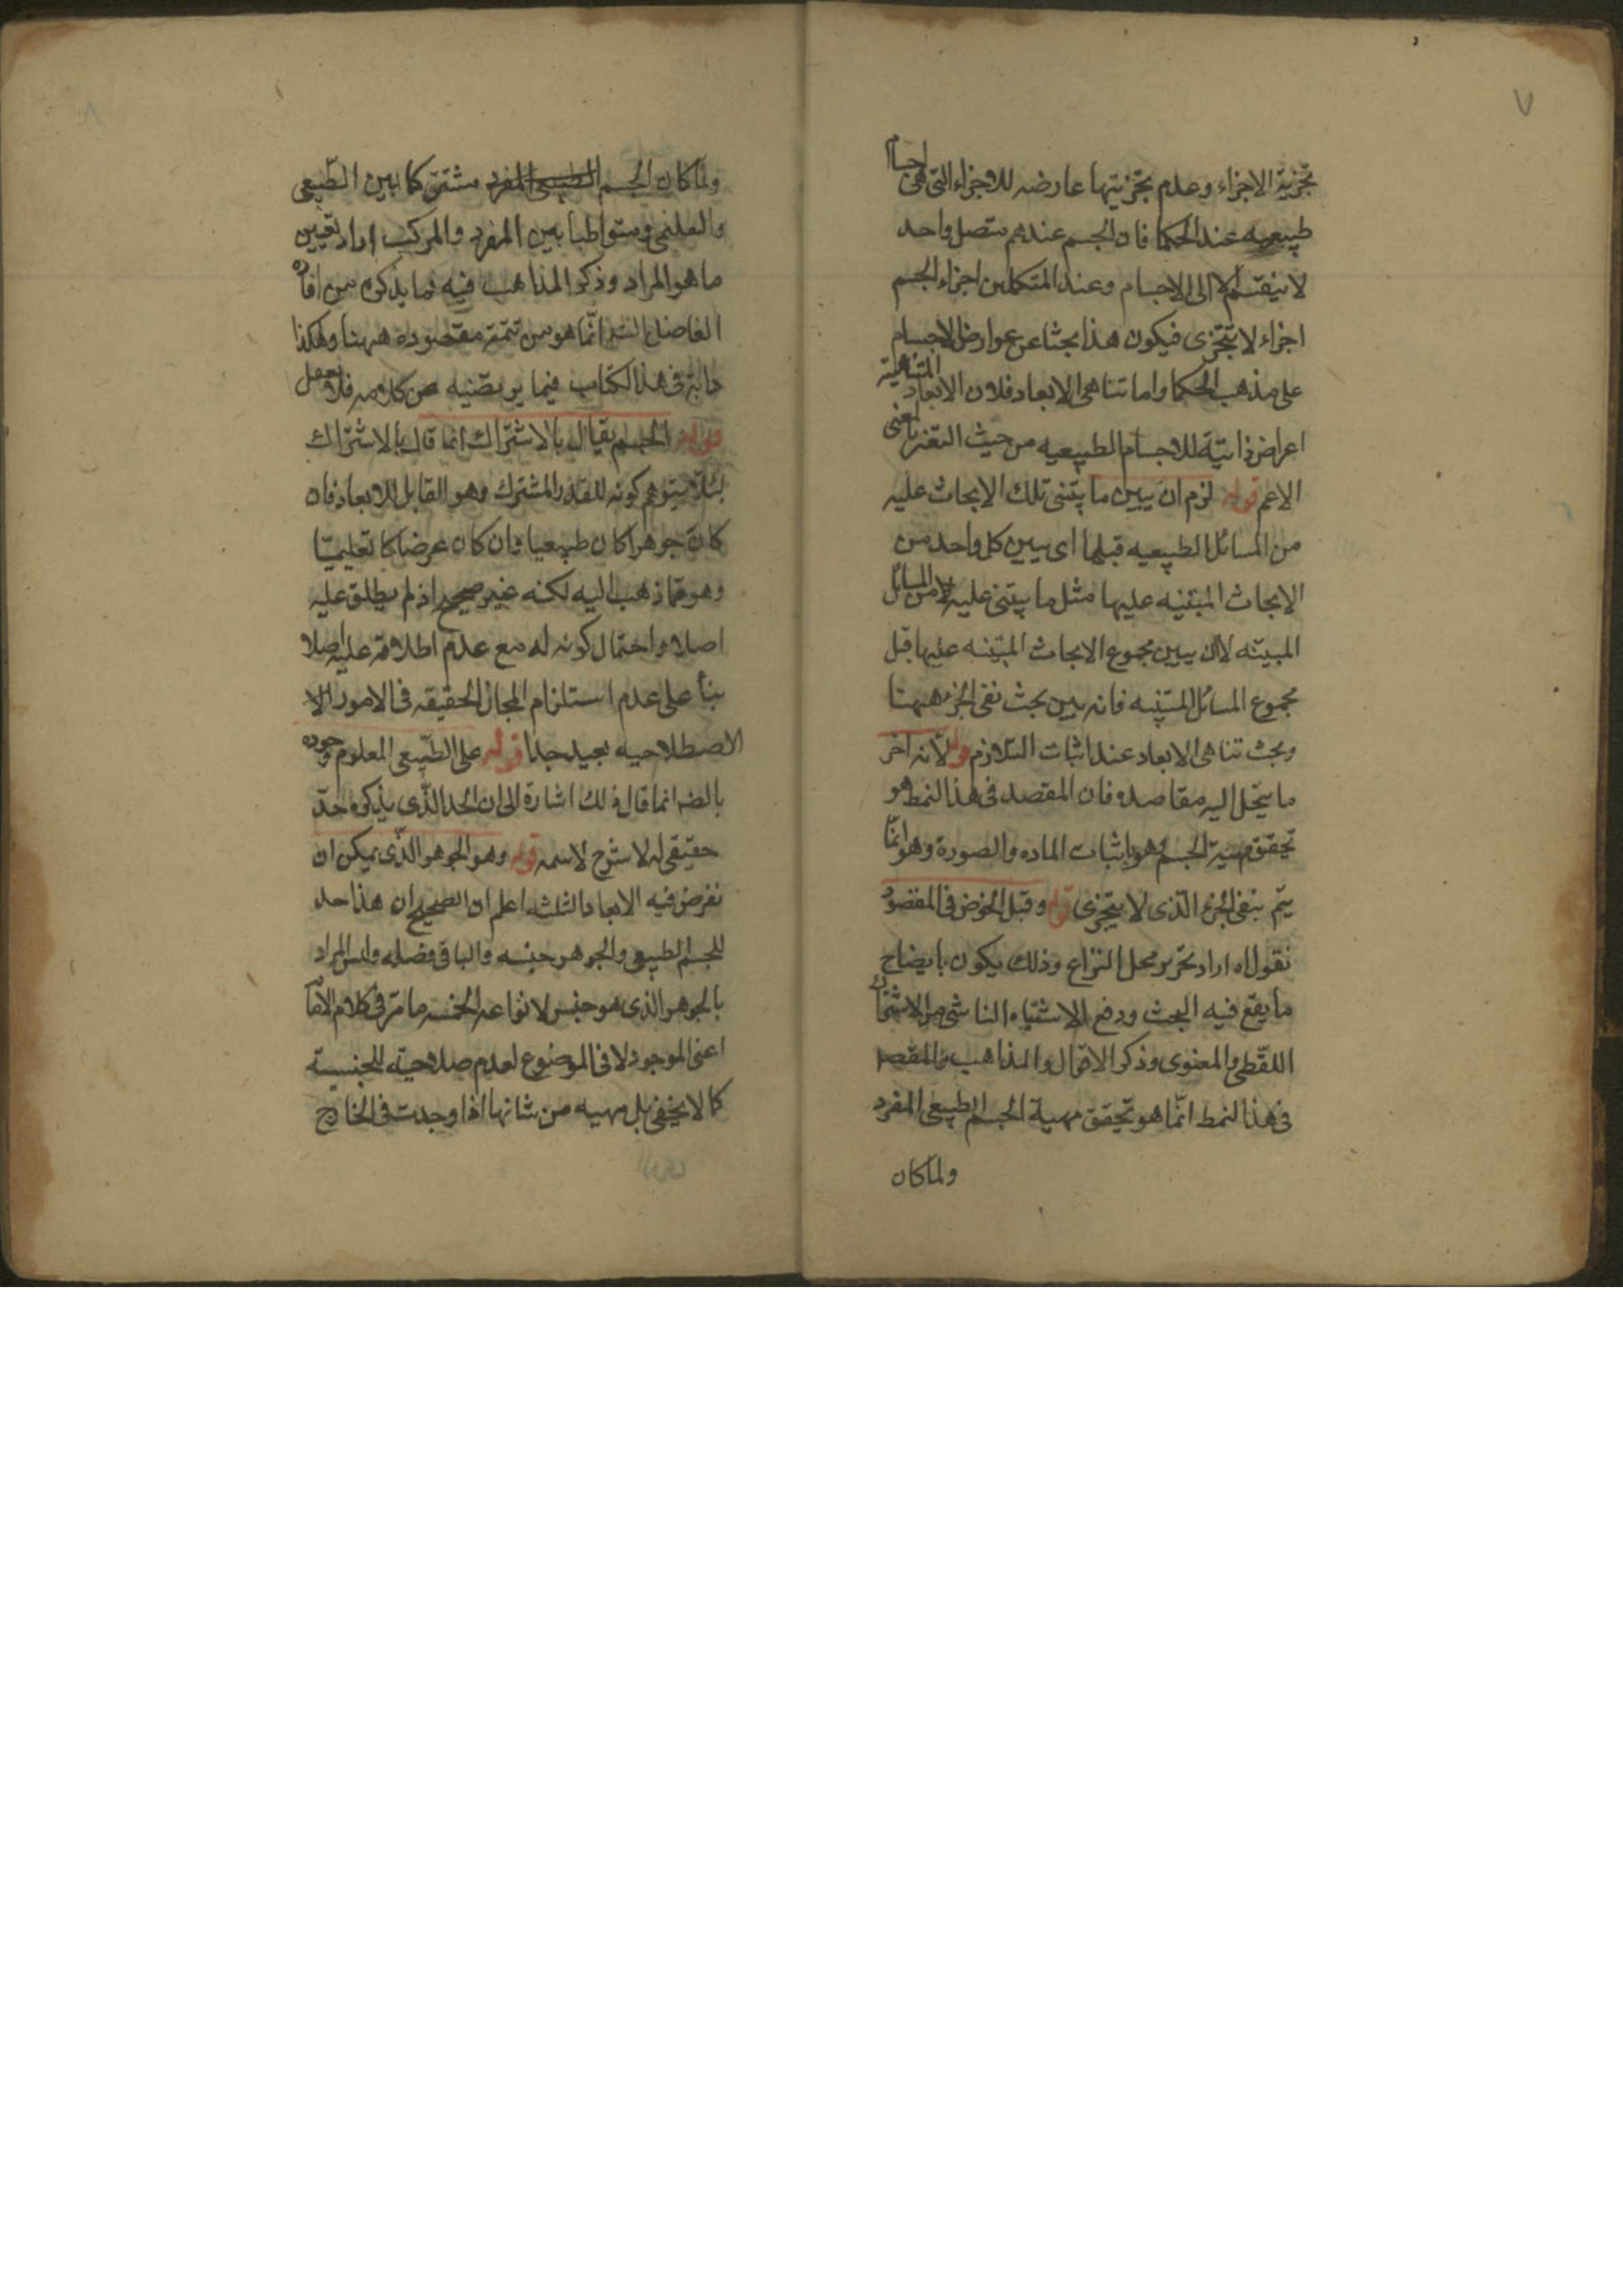 ٧
تجزية الاجزاء وعدم تجزيتها عارضه للاجزاء التى هى اجساما
طبيعيه عند الحكما فان الجسم عندهم متصل واحد
لا ينقسم الا الى الاجسام وعند المتكلمين اجزاء الجسم
اجزاء لا تتجزى فيكون هذا بحثا عن عوارض الاجسام
على مذهب الحكما واما تناهى الابعاد فلان الابعاد المتناهية
اعراض ذاتية للاجسام الطبيعيه من حيث التغير بالمعنى
الاعم قوله لزم ان يبين ما يبتنى تلك الابحاث عليه
من المسائل الطبيعيه قبلها اى يبين كل واحد من
الابحاث المبتنيه عليها مثل ما يبتنى عليه من المسائل
المبينه لا ان يبين مجموع الابحاث المبتنيه عليها قبل
مجموع المسائل المبتنيه فانه بين بحث نفى الجزء ههنا
وبحث تناهى الابعاد عند اثبات التلازم قوله لانه اخر
ما ينحل اليه مقاصده فان المقصد فى هذا النمط هو
تحقق مهية الجسم وهو باثبات الماده والصورة وهو انما
يتم بنفى الجزء الذى لا يتجزى قوله وقبل الخوض فى المقصود
نقول اه اراد تحرير محل النزاع وذلك يكون بايضاح
ما يقع فيه البحث ودفع الاشتباه الناشى من الاشتراك
اللفظى والمعنوى وذكر الاقوال والمذاهب والمقصد
فى هذا النمط انما هو تحقق مهية الجسم الطبيعى المفرد
ولما كان
٨
ولما كان الجسم الطبيعى المفرد مشتركا بين الطبيعى
والتعليمى ومتواطيا بين المفرد والمركب اراد تعيين
ما هو المراد وذكر المذاهب فيه فما يذكره من افاده
الفاضل انما هو من تتمة مقصوده ههنا وهكذا
دابه فى هذا الكتاب فيما يرتضيه من كلامه فلا تغفل
قوله الجسم يقال بالاشتراك انما قال بالاشتراك
لئلا يتوهم كونه للقدر المشترك وهو القابل للابعاد فان
كان جوهرا كان طبيعيا وان كان عرضا كا تعليميا
وهو مما ذهب اليه لكنه غير صحيح اذ لم يطلق عليه
اصلا واحتمال كونه له مع عدم اطلاقه عليه اصلا
بناء على عدم استلزام المجاز الحقيقه فى الامور الا
الاصطلاحيه بعيد جدا قوله على الطبيعى المعلوم وجوده
بالضر انما قال ذلك اشارة الى ان الحد الذى يذكره حد
حقيقى له لا شرح لاسمه قوله وهو الجوهر الذى يمكن ان
نفرض فيه الابعاد الثلثه اعلم ان الصحيح ان هذا حد
للجسم الطبيعى والجوهر جنسه والباقى فصله وليس المراد
بالجوهر الذى هو جنس لانواعه الخمسه ما مر فى كلام الامام
اعنى الموجود لا فى الموضوع لعدم صلاحيته للجنسية
كما لا يخفى بل مهيه من شانها اذا وجدت فى الخارج